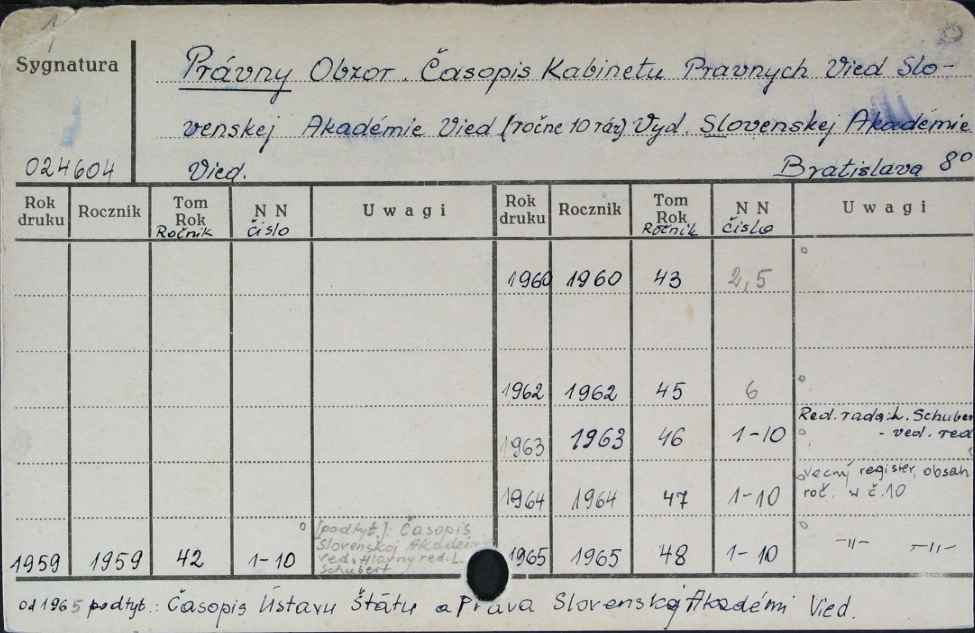 Sygnatura
024604
Právny Obzor. Časopis Kabinetu Pravnych Vied Slo-
venskej Akadémie Vied (ročne 10 ráz) Vyd. Slovenskej Akadémie
Vied. Bratislava 8°
Rok druku Rocznik Tom Rok Ročnik N N čislo Uwagi Rok druku Rocznik Tom Rok Ročnik N N čislo Uwagi
1960 1960 43 2,5
1962 1962 45 6
1963 1963 46 1-10 Red. rada: L. Schuber
- ved. red
1964 1964 47 1-10 Vecný register, obsah
roč. w č.10
1959 1959 42 1-10 [podtyt.]: Časopis
Slovenskej Akadémi
red. Hlavny red. L.
Schubert
1965 1965 48 1-10 -"- -"-
od 1965 podtyt.: Časopis Ústavu Štátu a Práva Slovenskej Akadémi Vied.